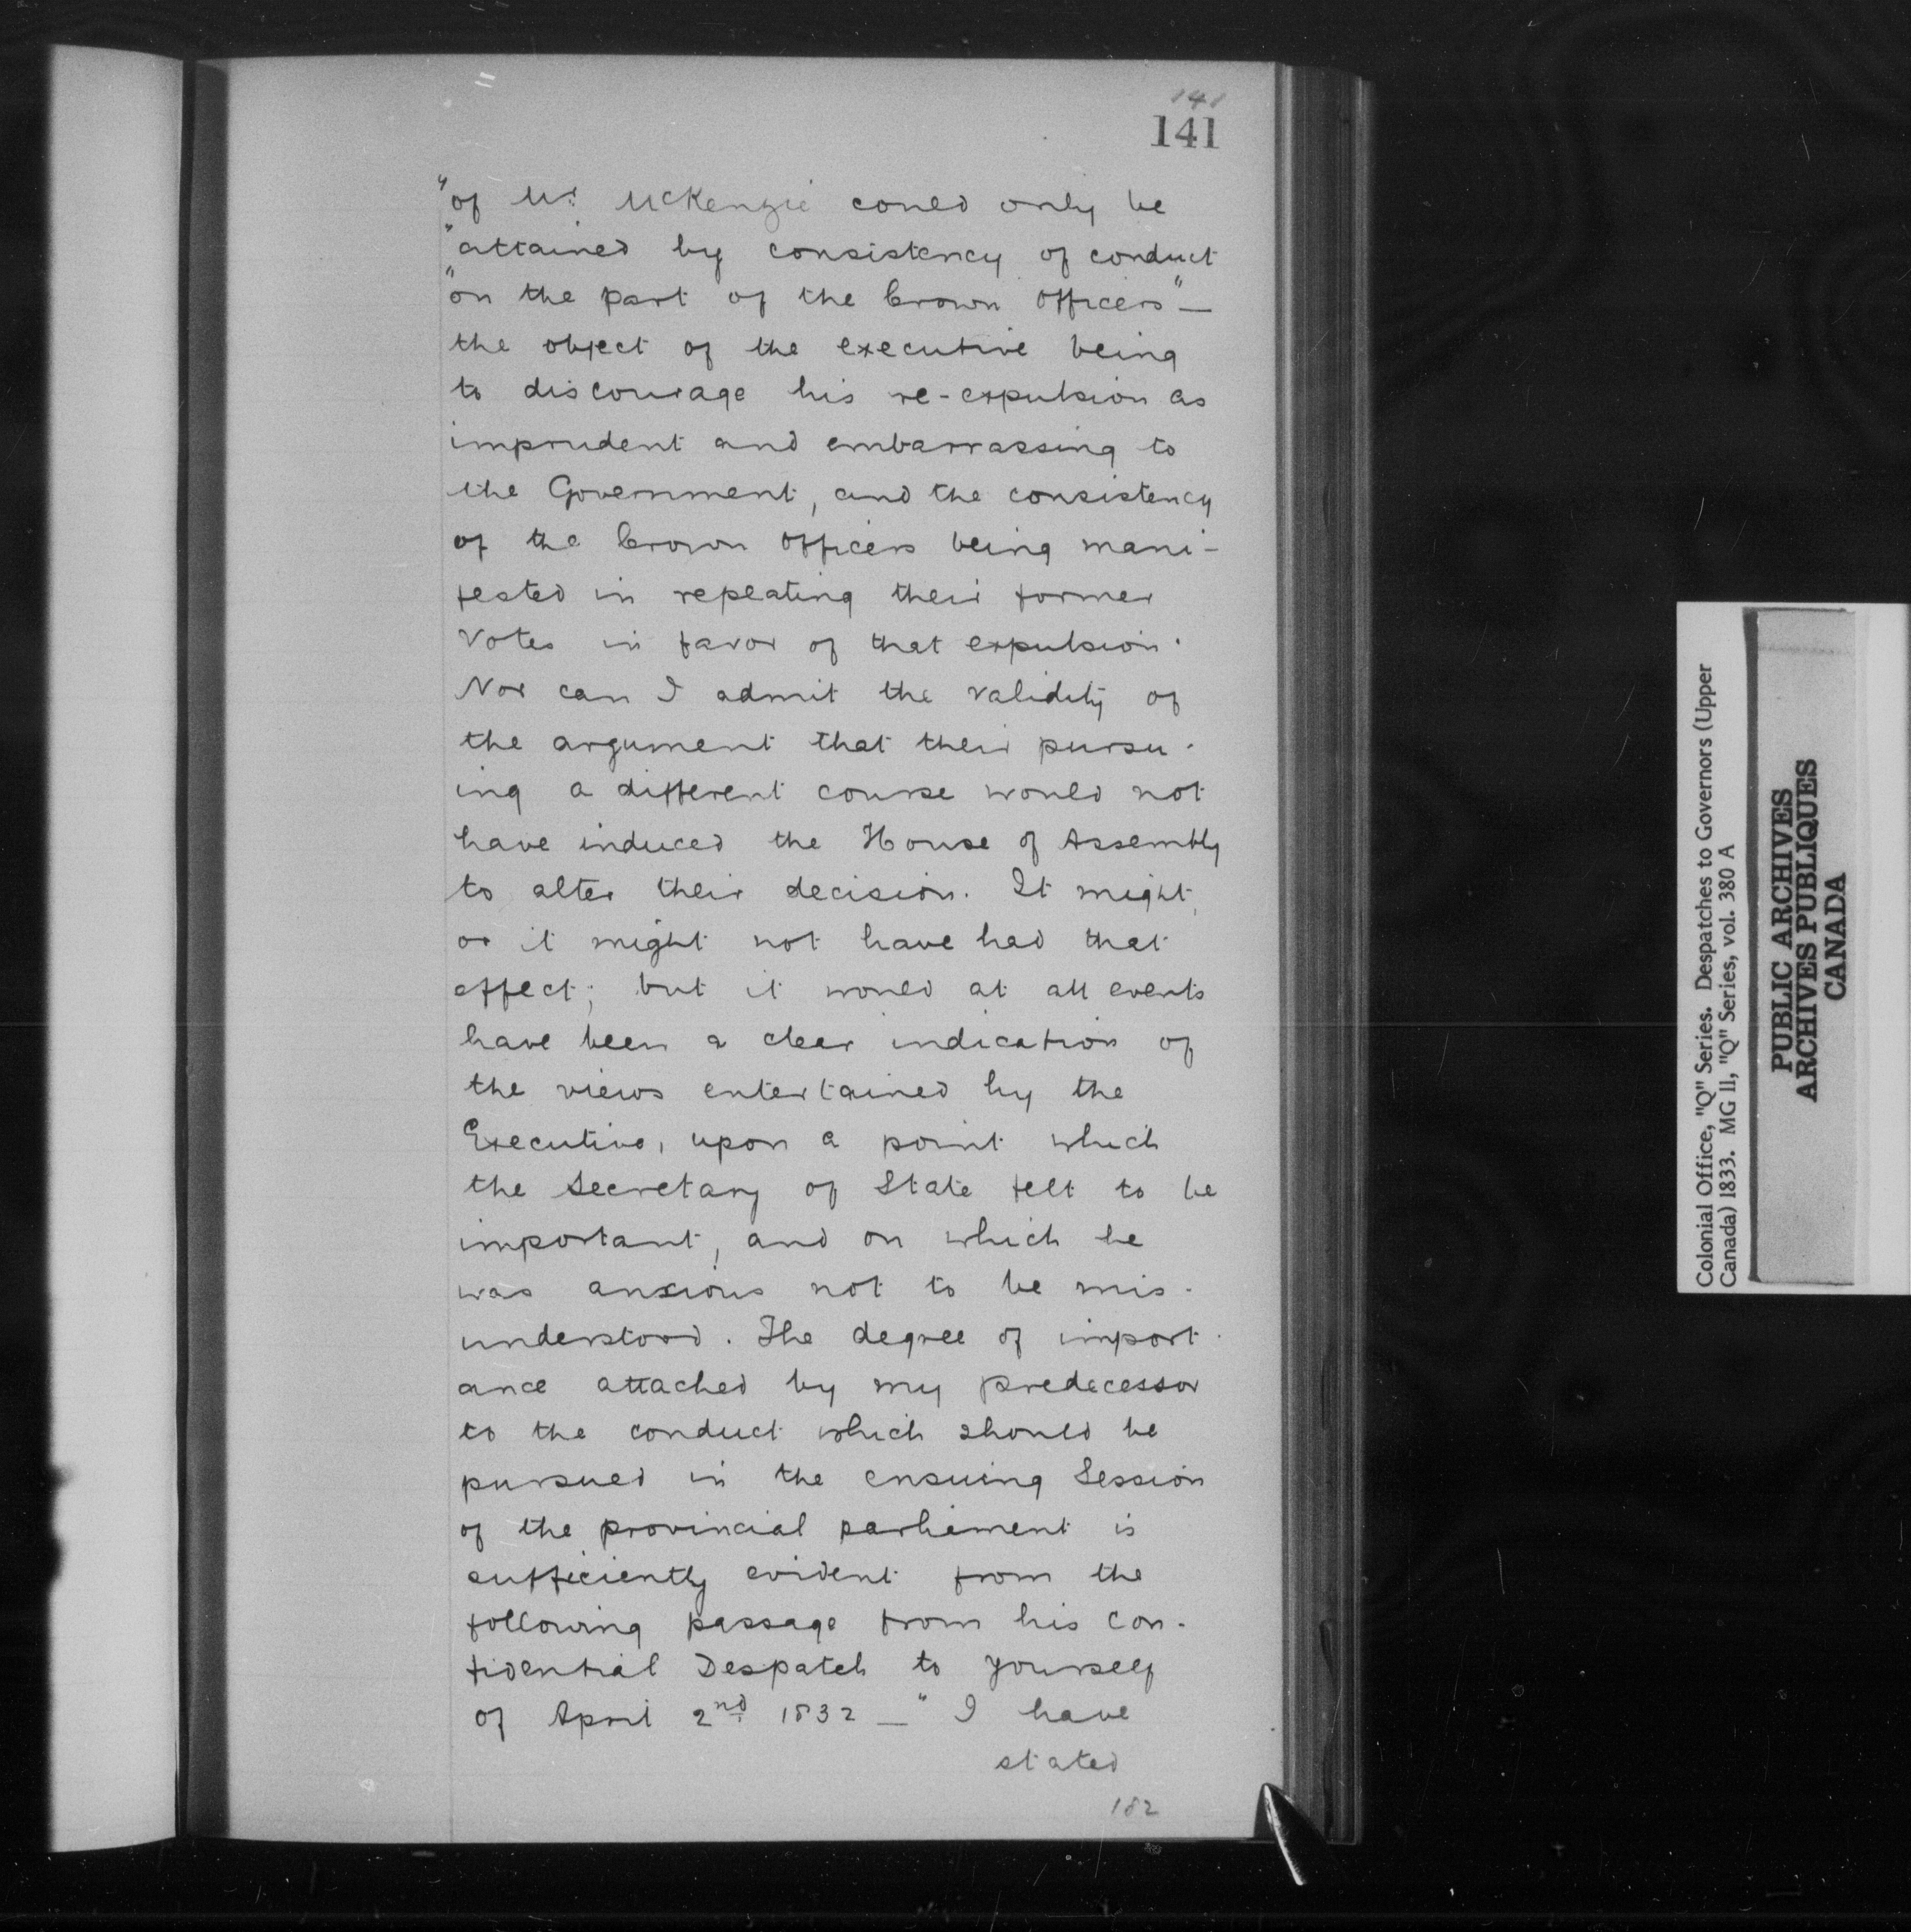 141
141
"of Mr. McKenzie could only be
"attained by consistency of conduct
"on the part of the Crown Officers" —
the object of the executive being
to discourage his re-expulsion as
imprudent and embarrassing to
the Government, and the consistency
of the Crown Officers being mani-
fested in repeating their former
Votes in favor of that expulsion.
Nor can I admit the validity of
the argument that their pursu-
ing a different course would not
have induced the House of Assembly
to alter their decision. It might,
or it might not have had that
effect; but it would at all events
have been a clear indication of
the views entertained by the
Executive, upon a point which
the Secretary of State felt to be
important, and on which he
was anxious not to be mis-
understood. The degree of import-
ance attached by my predecessor
to the conduct which should be
pursued in the ensuing Session
of the provincial parliament is
sufficiently evident from the
following passage from his con-
fidential Despatch to yourself
of April 2nd 1832 — "I have
stated
182
Colonial Office, "Q" Series. Despatches to Governors (Upper
Canada) 1833. MG 11, "Q" Series, vol. 380 A
PUBLIC ARCHIVES
ARCHIVES PUBLIQUES
CANADA